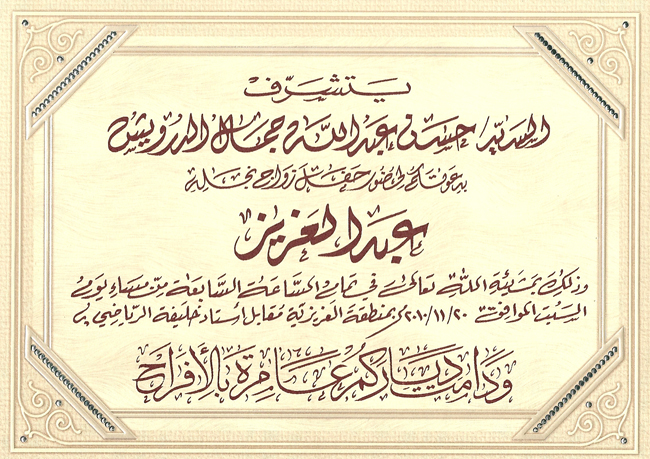 يتشرف
السيد/ حسن عبدالله جمال الدرويش
بدعوتكم لحضور حفل زواج نجله
عبدالعزيز
وذلك بمشيئة الله تعالى في تمام الساعة السابعة من مساء يوم
السبت الموافق ٢٠١٠/١١/٢٠م بمنطقة العزيزية مقابل استاد خليفة الرياضي
ودامت دياركم عامرة بالأفراح